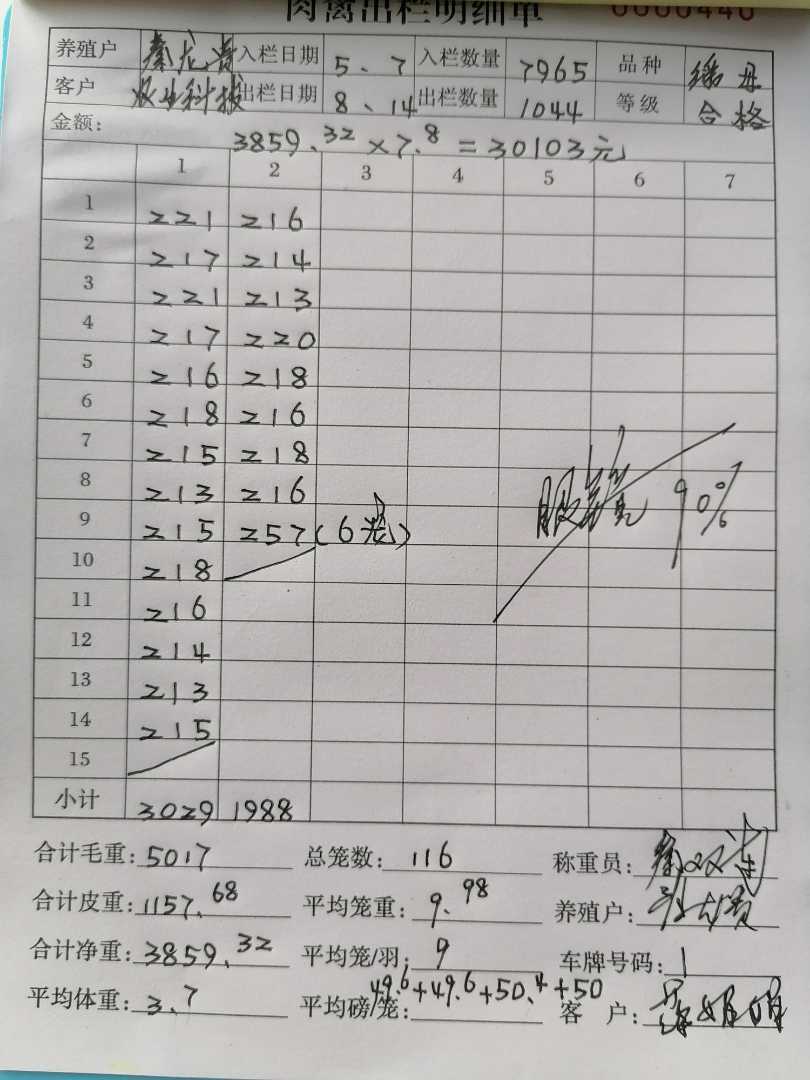 肉禽出栏明细单 0000440
养殖户 秦龙贵 入栏日期 5、7 入栏数量 7965 品种
客户 牧业科技 出栏日期 8、14 出栏数量 1044 等级 合格
金额: 3859.32×7.8=30103元
1 2 3 4 5 6 7
1 221 216
2 217 214
3 221 213
4 217 220
5 216 218
6 218 216
7 215 218
8 213 216
9 215 257(6笼)
10 218
11 216
12 214
13 213
14 215
15
小计 3029 1988
90%
合计毛重: 5017 总笼数: 116 称重员:
合计皮重: 1157.68 平均笼重: 9.98 养殖户:
合计净重: 3859.32 平均笼/羽: 9 车牌号码: 1
平均体重: 3.7 平均磅/笼: 49.6+49.6+50.4+50 客 户: